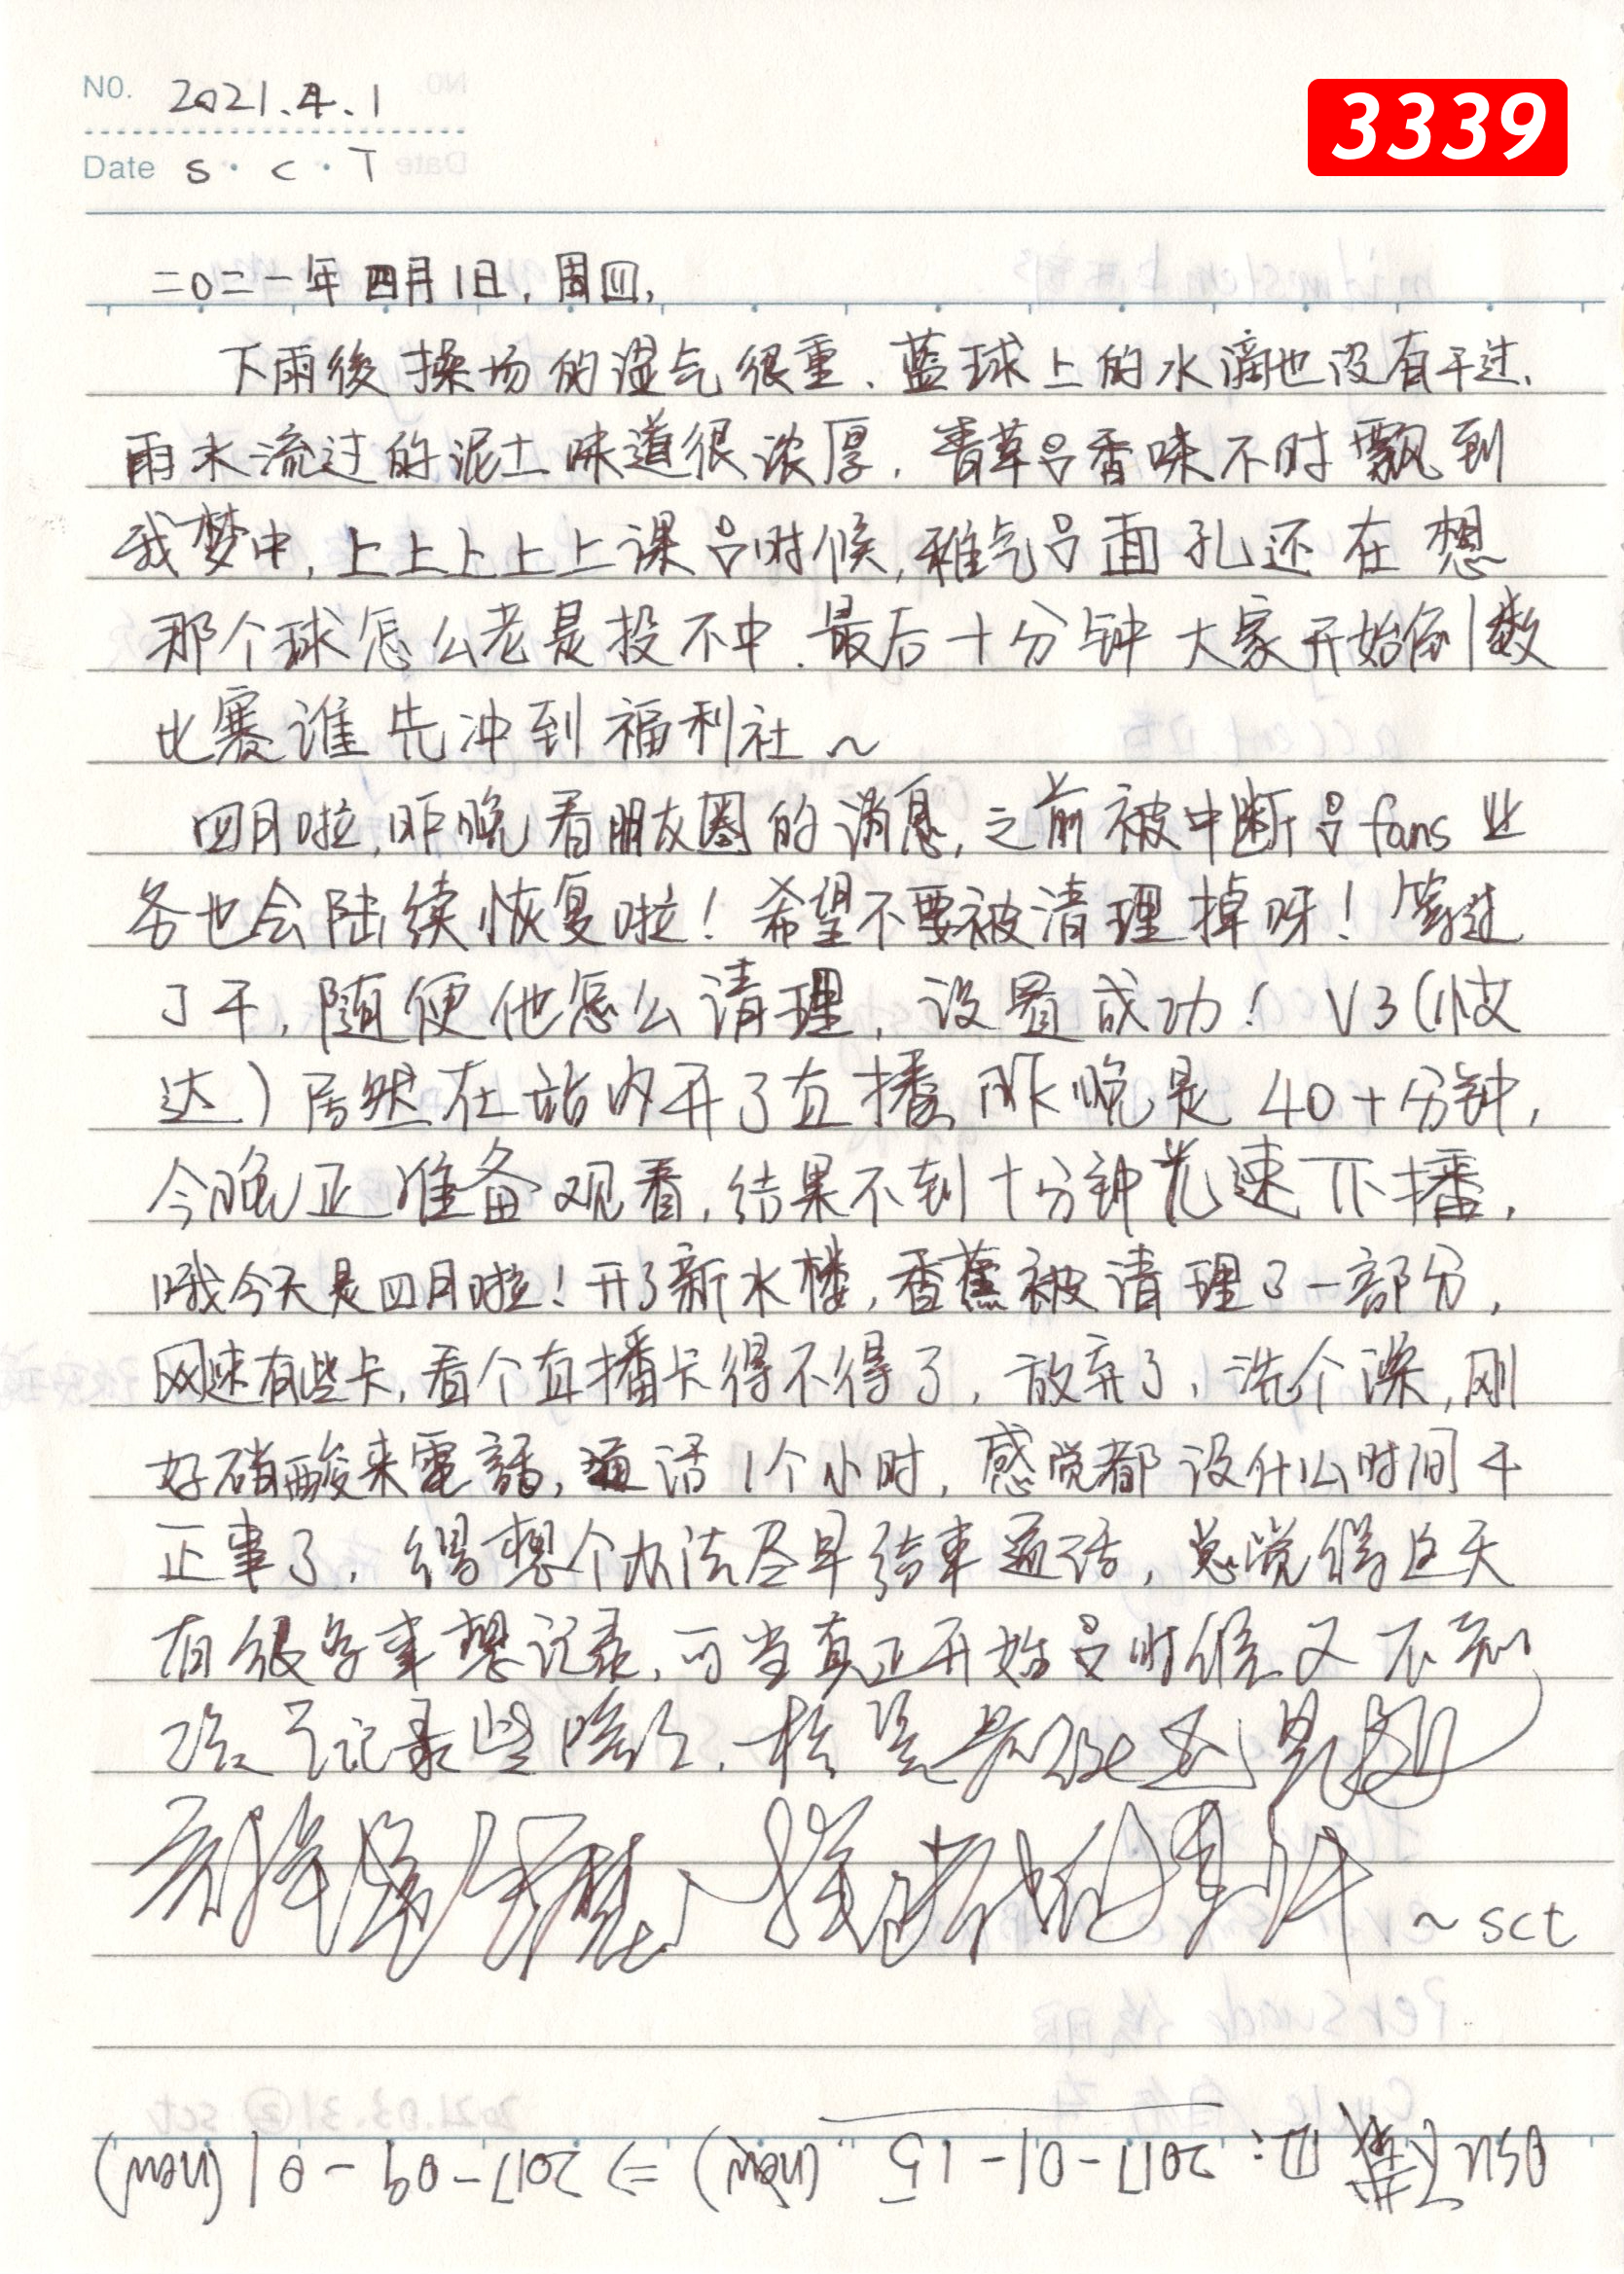 NO. 2021.4.1
3339
Date S·C·T
二0二一年四月1日,周四,
下雨後操场的湿气很重、蓝球上的水滴也没有干过、
雨水流过的泥土味道很浓厚,青草的香味不时飘到
我梦中,上上上上上课的时候,稚气的面孔还在想
那个球怎么老是投不中.最后十分钟大家开始倒数
比赛谁先冲到福利社~
四月啦,昨晚看朋友圈的消息,之前被中断的fans业
务也会陆续恢复啦!希望不要被清理掉呀!等过
了千,随便他怎么清理,设置成功!V3(
达)居然在站内开了直播,昨晚是40+分钟,
今晚正准备观看,结果不到十分钟光速下播,
哦今天是四月啦!开了新水楼,香蕉被清理了一部分,
网速有些卡,看个直播卡得不得了,放弃了、洗个澡,刚
好硝酸来電話,通话1个小时,感觉都没什么时间干
正事了,得想个办法尽早结束通话,总觉得这天
有很多事想记录,可当真正开始的时候又不知
记录些啥
的事件~sct
2021.03.31@sct
2017-01-15 (new) => 2017-09-01 (new)